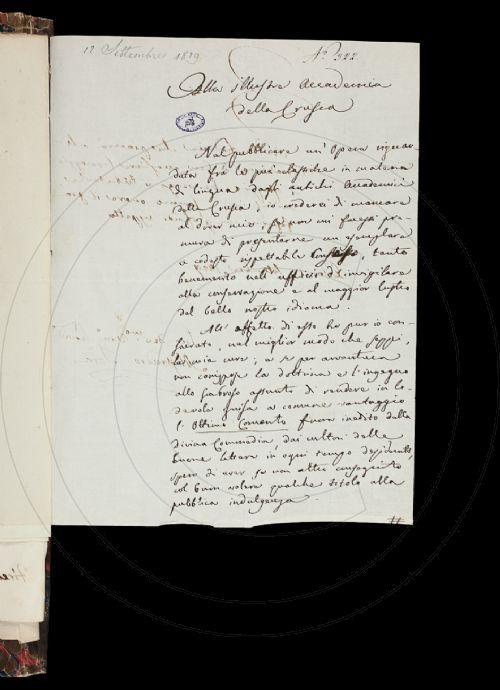 12 Settembre 1829
N.° 322
Alla illustre Accademia
della Crusca
Nel pubblicare un' Opera riguar
data fra le più classiche in materia
di lingua dagli antichi Accademici
della Crusca, io crederei di mancare
al dover mio, se non mi facessi pre
mura di presentarne un esemplare
a codesto rispettabile Consesso, tanto
benemerito nell' ufficio di invigilare
alla conservazione e al maggior lustro
del bello nostro idioma.
All' affetto di esso ho pur io con
sacrato, nel miglior modo che seppi,
le mie cure; e se per avventura
non corrispose la dottrina e l' ingegno
allo scabroso assunto di rendere in lo
devole guisa a comune vantaggio
l' Ottimo Comento finora inedito della
divina Commedia, dai cultori delle
buone lettere in ogni tempo desiderato,
spero di aver, se non altro conseguito
col buon volere qualche titolo alla
pubblica indulgenza.